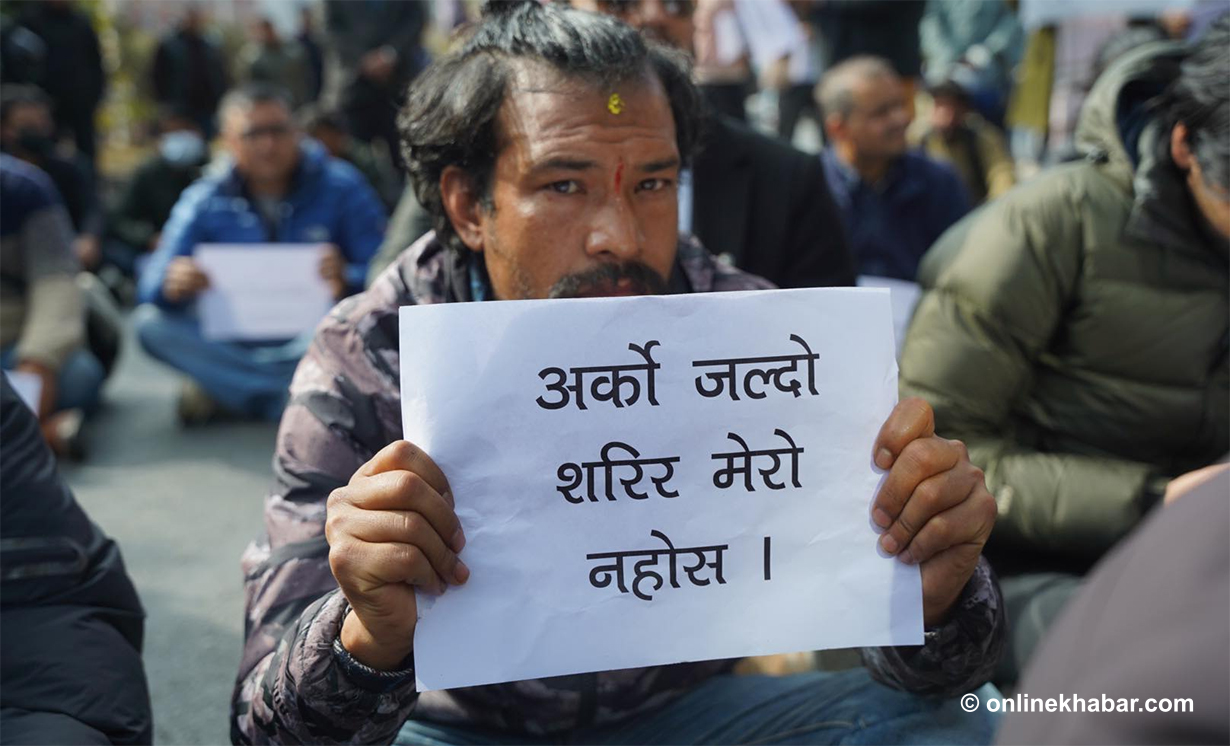 अर्को जल्दो
शरिर मेरो
नहोस ।
© onlinekhabar.com